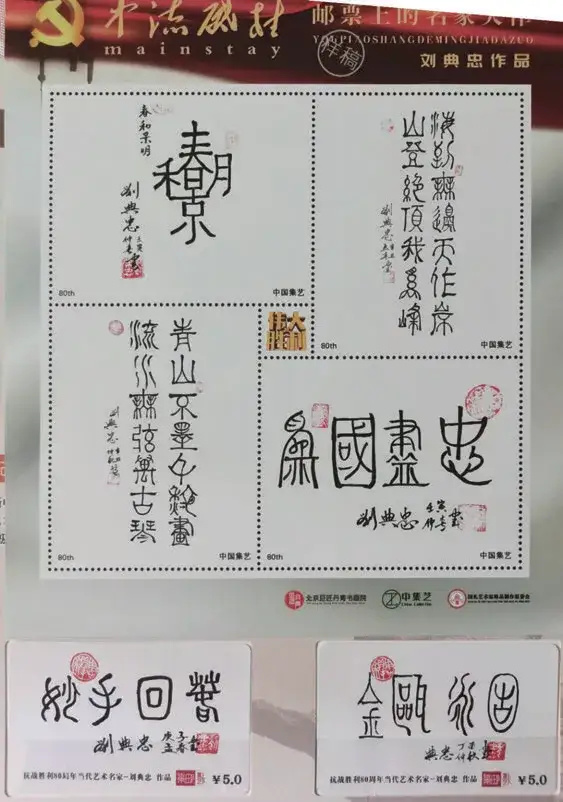 中流砥柱
mainstay
邮票上的名家大作
YOUPIAOSHANGDEMINGJIADAZUO
样稿
刘典忠作品
春和景明
春和景明
劉典忠
壬寅
仲春
80th
中国集艺
海到無邊天作岸
山登絕頂我為峰
劉典忠
80th
中国集艺
青山不墨千秋畫
流水無弦萬古琴
劉典忠
80th
中国集艺
伟大胜利
國盡忠
劉典忠
壬寅
仲春
80th
中国集艺
北京巨匠丹青书画院
中集艺
妙手回春
劉典忠
庚子
孟春
抗战胜利80周年当代艺术名家-刘典忠 作品
¥5.0
金甌永固
典忠
抗战胜利80周年当代艺术名家-刘典忠 作品
¥5.0